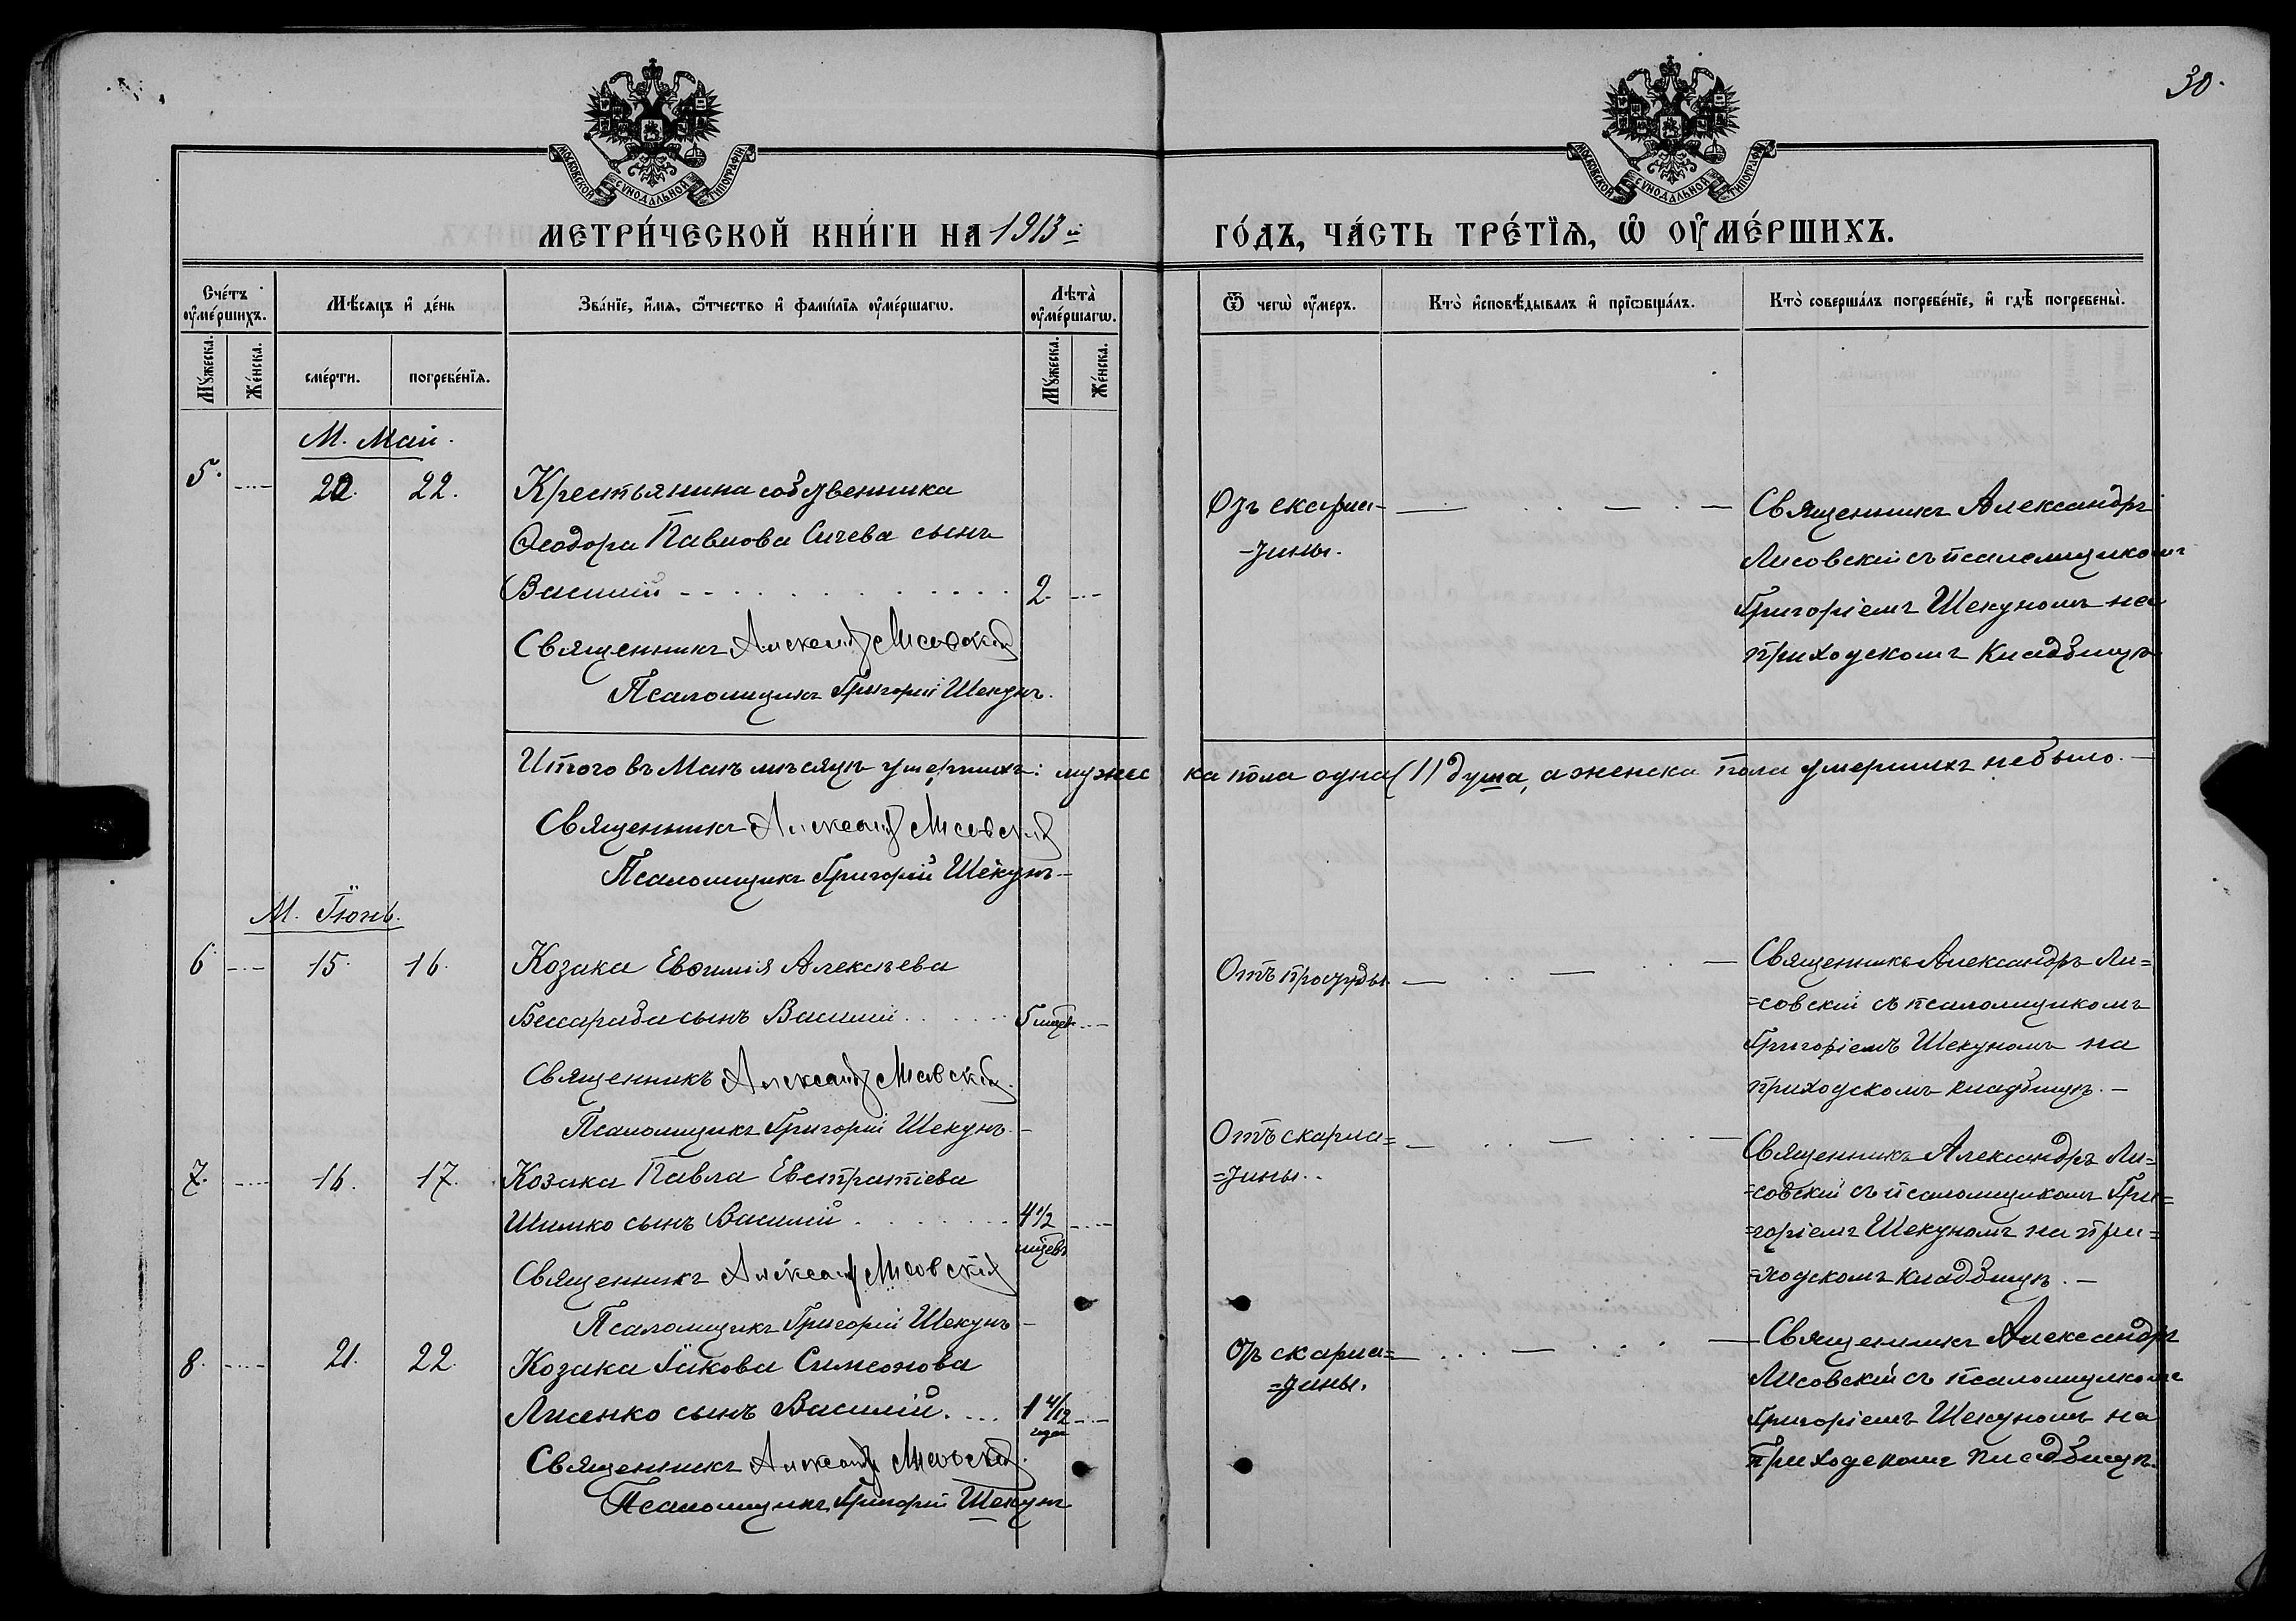 30.
МОСКОВСКОЙ СѴНОДАЛЬНОЙ ТИПОГРАФІИ
МОСКОВСКОЙ СѴНОДАЛЬНОЙ ТИПОГРАФІИ
МЕТРИ́ЧЕСКОЙ КНИ́ГИ НА 1913й ГО́ДЪ, ЧА́СТЬ ТРЕ́ТЇѦ, Ѡ ОУ҆МЕ́РШИХЪ.
Сче́тъ оу҆ме́ршихъ.
Мѣ́сяцъ и҆ де́нь
Зва́нїе, и҆́мя, ѻ҆́тчество и҆ фами́лїя оу҆ме́ршагѡ.
Лѣта̀ оу҆ме́ршагѡ.
Ѿ чегѡ̀ оу҆́меръ.
Кто̀ и҆сповѣ́дывалъ и҆ прїѡбща́лъ.
Кто̀ соверша́лъ погребе́нїе, и҆ гдѣ̀ погребены̀.
Мꙋ́жеска.
Же́нска.
сме́рти.
погребе́нїя.
Мꙋ́жеска.
Же́нска.
М. Май.
5. 22. 22. Крестьянина собственника
Ѳеодора Павлова Сичева сынъ
Василій 2.
Священникъ Александръ Лисовскій
Псаломщикъ Григорій Шекунъ.
Отъ скарла-
-тины.
Священникъ Александръ
Лисовскій съ псаломщикомъ
Григоріемъ Шекуномъ на
приходскомъ кладбищѣ
Итого въ Маѣ мѣсяцѣ умершихъ: мужес ка пола одна (1) душа, а женска пола умершихъ небыло.
Священникъ Александръ Лисовскій
Псаломщикъ Григорій Шекунъ
М. Іюнь.
6. 15. 16. Козака Евѳимія Алексѣева
Бессараба сынъ Василій 5 мцев
Священникъ Александръ Лисовскій.
Псаломщикъ Григорій Шекунъ.
Отъ простуды.
Священникъ Александръ Ли=
=совскій съ псаломщикомъ
Григоріемъ Шекуномъ на
приходскомъ кладбищѣ.
7. 16. 17. Козака Павла Евстратіева
Шимко сынъ Василій 4 1/2
мцевъ
Священникъ Александръ Лисовскій
Псаломщикъ Григорій Шекунъ
Отъ скарла=
=тины.
Священникъ Александръ Ли=
=совскій съ псаломщикомъ Гри=
=горіемъ Шекуномъ на при=
=ходскомъ кладбищѣ.
8. 21. 22. Козака Іакова Симеонова
Лисенко сынъ Василій. 1 4/12
года
Священникъ Александръ Лисовскій.
Псаломщикъ Григорій Шекунъ
Отъ скарла=
=тины.
Священникъ Александръ
Лисовскій съ псаломщикомъ
Григоріемъ Шекуномъ на
приходскомъ кладбищѣ.